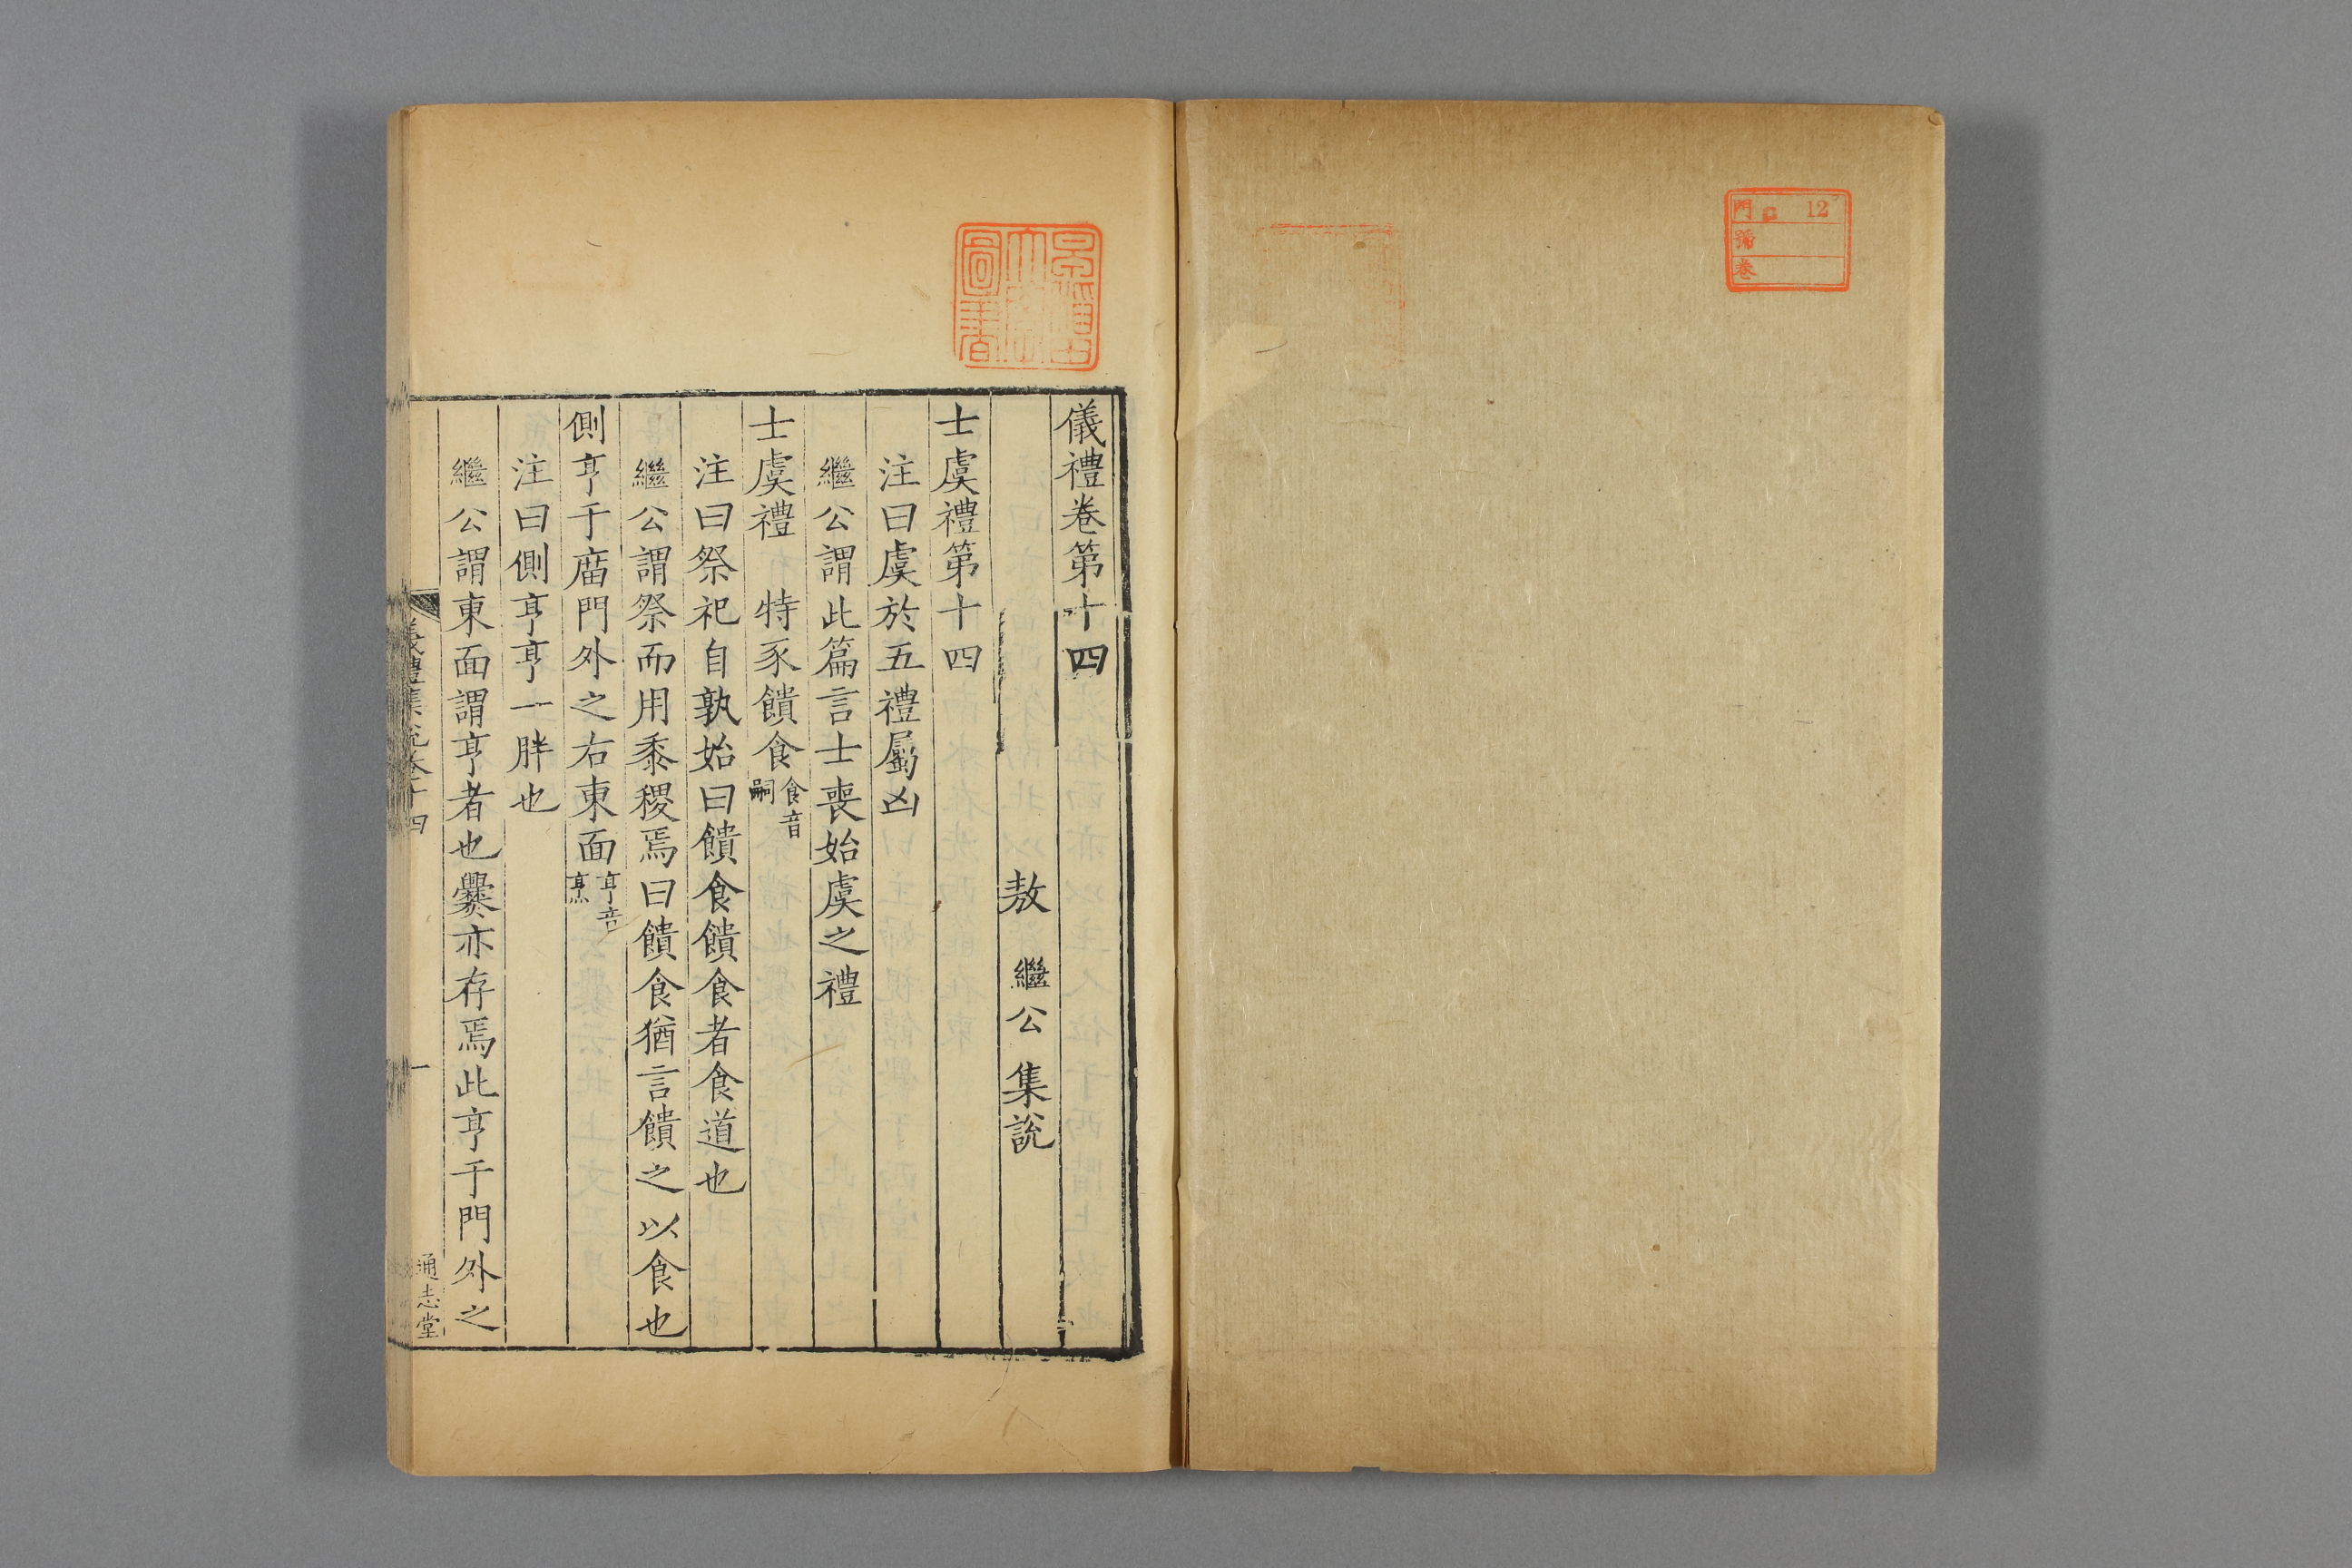 門 12
號
卷
儀禮卷第十四
敖繼公集說
士虞禮第十四
注曰虞於五禮屬凶
繼公謂此篇言士喪始虞之禮
士虞禮 特豕饋食食音嗣
注曰祭祀自孰始曰饋食饋食者食道也
繼公謂祭而用黍稷焉曰饋食猶言饋之以食也
側亨于庿門外之右東面亨音烹
注曰側亨亨一胖也
繼公謂東面謂亨者也爨亦存焉此亨于門外之
儀禮集說卷十四 一 通志堂